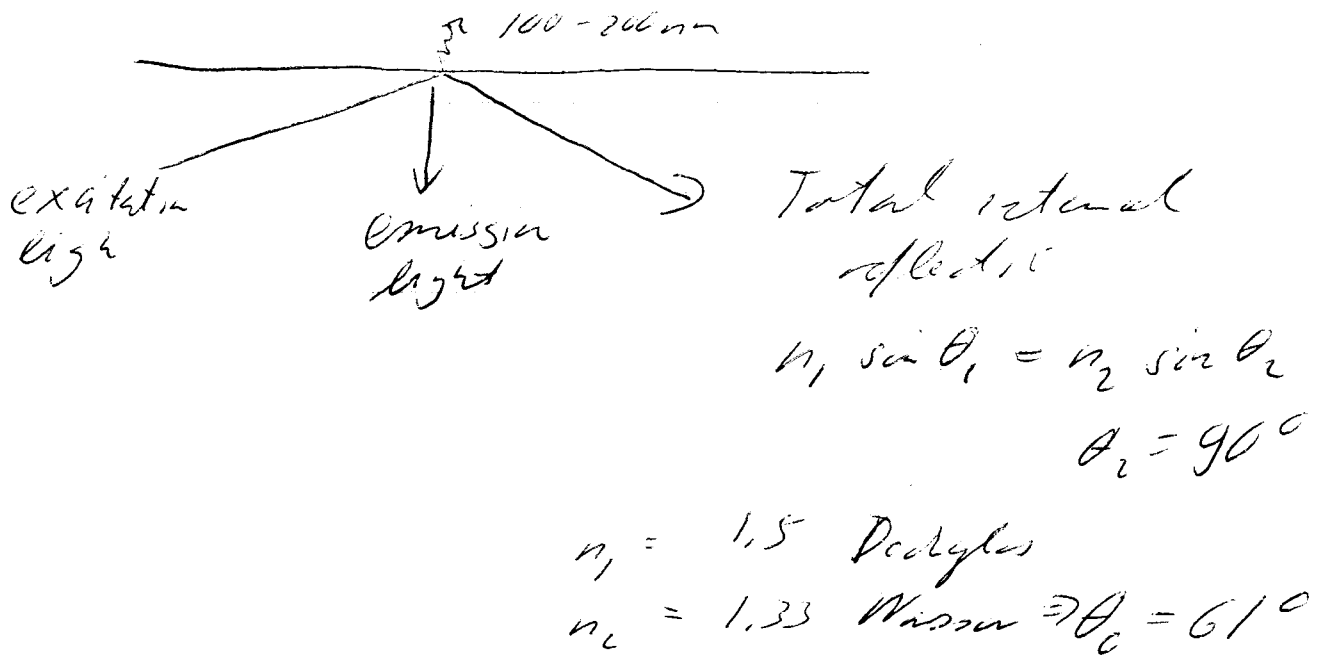 100-200nm
exitatin
ligh
emission
light
Total internal
reflectii
n₁ sin θ₁ = n₂ sin θ₂
θ₂ = 90°
n₁ = 1,5 Deckglas
n₂ = 1.33 Wasser ⇒ θc = 61°